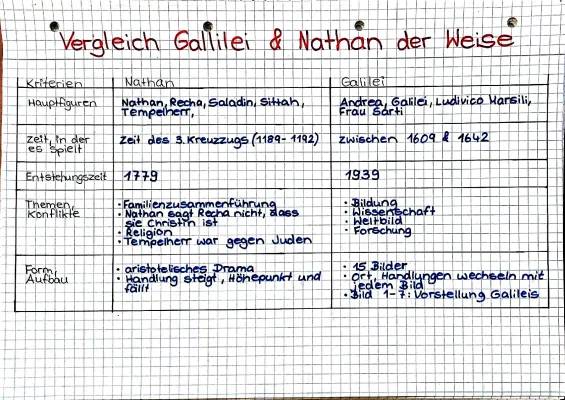 Vergleich Gallilei & Nathan der Weise
Kriterien Nathan Galilei
Hauptfiguren Nathan, Recha, Saladin, Sittah, Andrea, Galilei, Ludivico Marsili,
Tempelherr, Frau Sarti
Zeit, in der Zeit des 3. Kreuzzugs (1189-1192) zwischen 1609 & 1642
es spielt
Entstehungszeit 1779 1939
Themen, • Familienzusammenführung • Bildung
Konflikte • Nathan sagt Recha nicht, dass • Wissenschaft
sie Christin ist • Weltbild
• Religion • Forschung
• Tempelherr war gegen Juden
Form, • aristotelisches Drama • 15 Bilder
Aufbau • Handlung steigt, Höhepunkt und • Ort, Handlungen wechseln mit
fällt jedem Bild
• Bild 1-7: Vorstellung Galileis